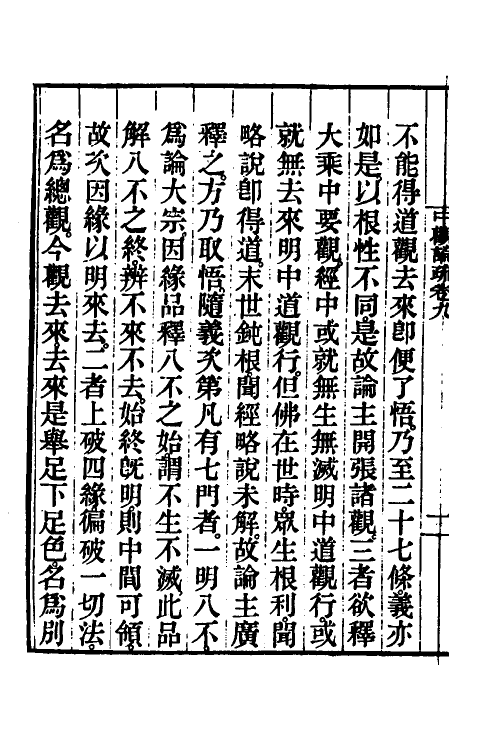 中觀論疏卷九
十一
不能得道觀去來卽便了悟。乃至二十七條。義亦
如是。以根性不同。是故論主開張諸觀。三者欲釋
大乘中要觀。經中或就無生無滅明中道觀行。或
就無去來明中道觀行。但佛在世時。衆生根利。聞
略說卽得道。末世鈍根。聞經略說未解。故論主廣
釋之。方乃取悟。隨義次第凡有七門者。一明八不
爲論大宗。因緣品釋八不之始。謂不生不滅。此品
解八不之終。辨不來不去。始終旣明。則中間可領。
故次因緣以明來去。二者上破四緣。徧破一切法。
名爲總觀。今觀去來去來是舉足下足色。名爲別